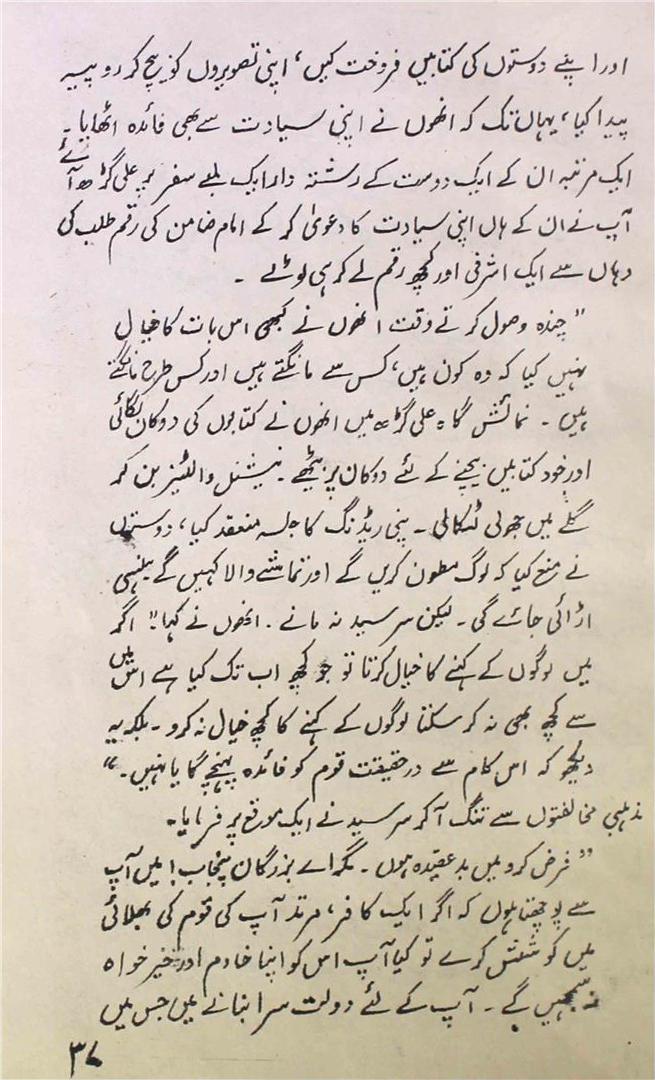 اور اپنے دوستوں کی کتابیں فروخت کیں، اپنی تصویروں کو بیچ کر روپیہ
پیدا کیا، یہاں تک کہ انھوں نے اپنی سیادت سے بھی فائدہ اٹھایا۔
ایک مرتبہ ان کے ایک دوست کے رشتہ دار ایک لمبے سفر پر علی گڑھ آئے
آپ نے ان کے ہاں اپنی سیادت کا دعویٰ کر کے امام ضامن کی رقم طلب کی
وہاں سے ایک اشرفی اور کچھ رقم لے کر ہی لوٹے ۔
"چندہ وصول کرتے وقت انھوں نے کبھی اس بات کا خیال
نہیں کیا کہ وہ کون ہیں، کس سے مانگتے ہیں اور کس طرح مانگتے
ہیں ۔ نمائش گاہ علی گڑھ میں انھوں نے کتابوں کی دوکان لگائی
اور خود کتابیں بیچنے کے لئے دوکان پر بیٹھے ۔ نیشنل والنٹیر بن کر
گلے میں جھولی لٹکالی ۔ پنی ریڈنگ کا جلسہ منعقد کیا، دوستوں
نے منع کیا کہ لوگ مطعون کریں گے اور تماشے والا کہیں گے ہنسی
اڑائی جائے گی ۔ لیکن سرسید نہ مانے ۔ انھوں نے کہا۔" اگر
میں لوگوں کے کہنے کا خیال کرتا تو جو کچھ اب تک کیا ہے اس میں
سے کچھ بھی نہ کر سکتا لوگوں کے کہنے کا کچھ خیال نہ کرو ۔ بلکہ یہ
دیکھو کہ اس کام سے درحقیقت قوم کو فائدہ پہنچے گا یا نہیں ۔"
مذہبی مخالفتوں سے تنگ آ کر سرسید نے ایک موقع پر فرمایا۔
"فرض کرو میں بد عقیدہ ہوں ۔ مگر اے بزرگان پنجاب! میں آپ
سے پوچھتا ہوں کہ اگر ایک کافر، مرتد آپ کی قوم کی بھلائی
میں کوشش کرے تو کیا آپ اس کو اپنا خادم اور خیر خواہ
نہ سمجھیں گے ۔ آپ کے لئے دولت سرا بنانے میں جس میں
۳۷